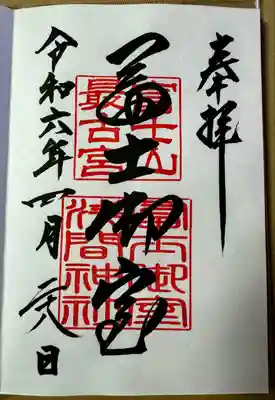 奉拝
冨士御室
富士山
最古宮
冨士御室
浅間神社
令和六年四月二八日